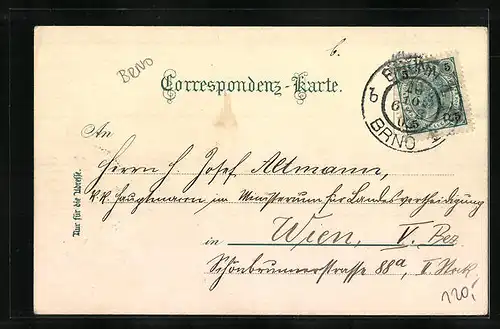 6.
Brno
Correspondenz-Karte.
BRÜNN
BRNO
An
Herrn H. Josef Altmann,
k.k. Hauptmann im Ministerium für Landesvertheidigung
in Wien, V. Bez
Schönbrunnerstrasse 88a, II. Stock
Nur für die Adresse.
120,-